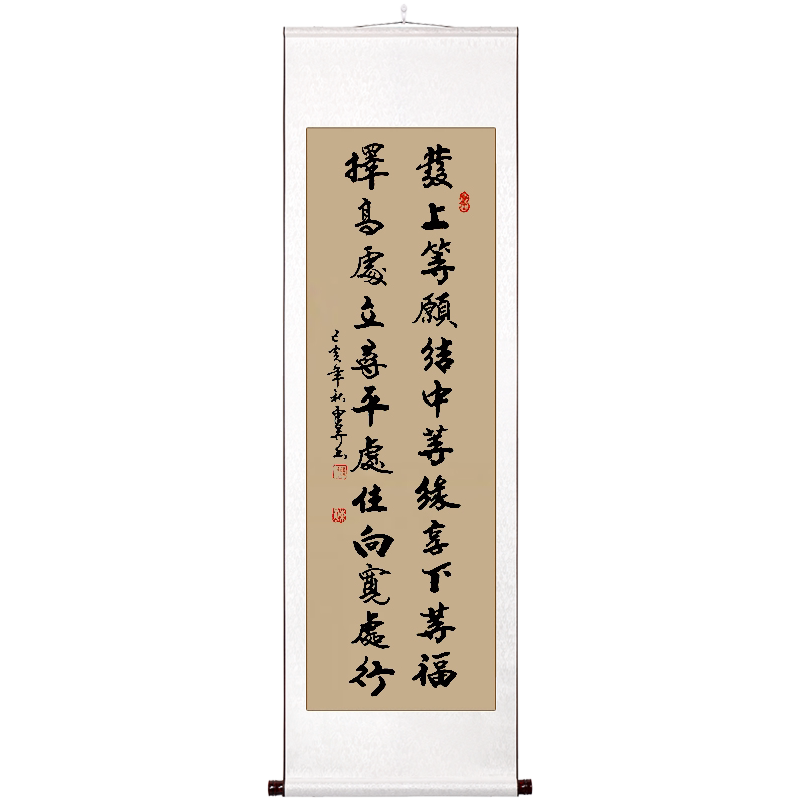 發上等願結中等緣享下等福
擇高處立尋平處住向寬處行
己亥年秋